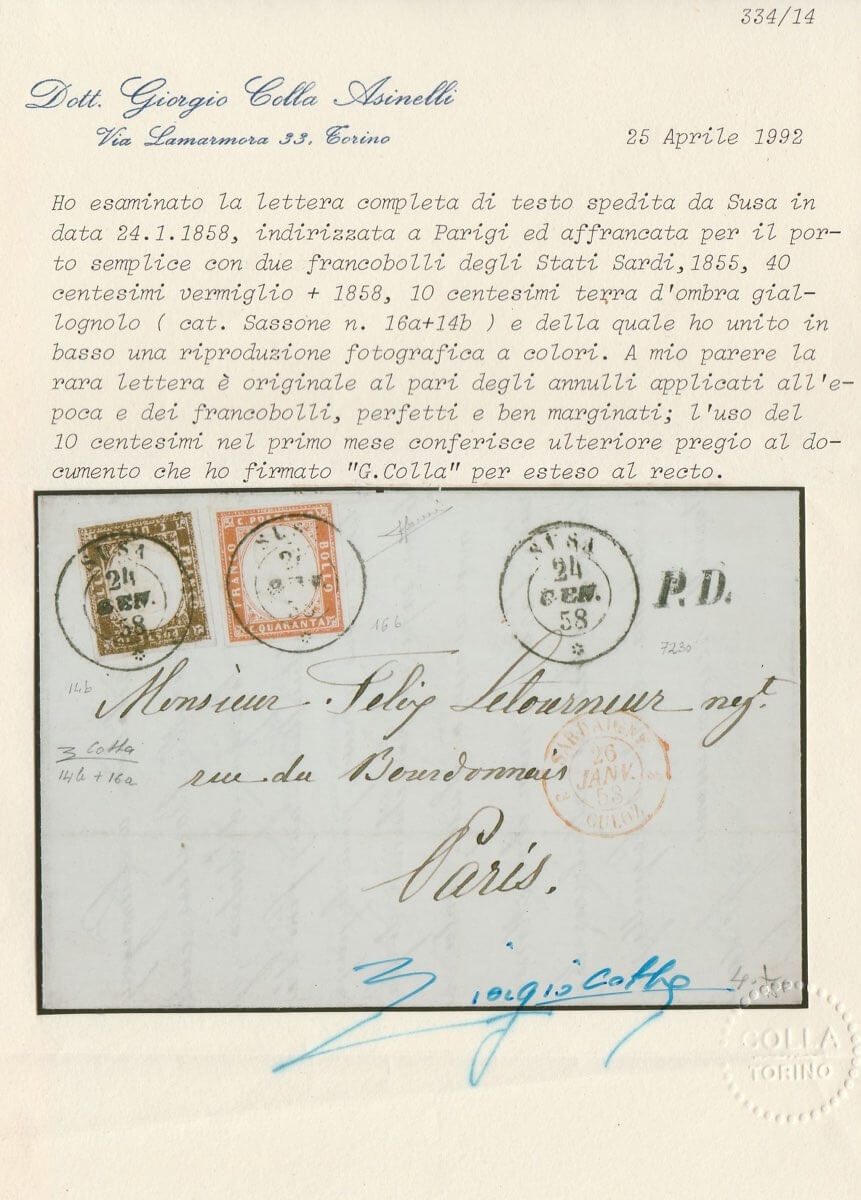 334/14
Dott. Giorgio Colla Asinelli
Via Lamarmora 33, Torino
25 Aprile 1992
Ho esaminato la lettera completa di testo spedita da Susa in
data 24.1.1858, indirizzata a Parigi ed affrancata per il por-
to semplice con due francobolli degli Stati Sardi,1855, 40
centesimi vermiglio + 1858, 10 centesimi terra d'ombra gial-
lognolo ( cat. Sassone n. 16a+14b ) e della quale ho unito in
basso una riproduzione fotografica a colori. A mio parere la
rara lettera è originale al pari degli annulli applicati all'e-
poca e dei francobolli, perfetti e ben marginati; l'uso del
10 centesimi nel primo mese conferisce ulteriore pregio al do-
cumento che ho firmato "G.Colla" per esteso al recto.
SUSA
24
GEN.
58
C. POSTE
FRANCO
BOLLO
C.QUARANTA
SUSA
24
GEN.
58
P.D.
16b
7230
14b
Monsieur Felix Letourneur negt.
G Colla
14b + 16a
rue du Bourdonnais
SARDAIGNE
26
JANV.
58
CULOZ
Paris.
Giorgio Colla
COLLA
TORINO